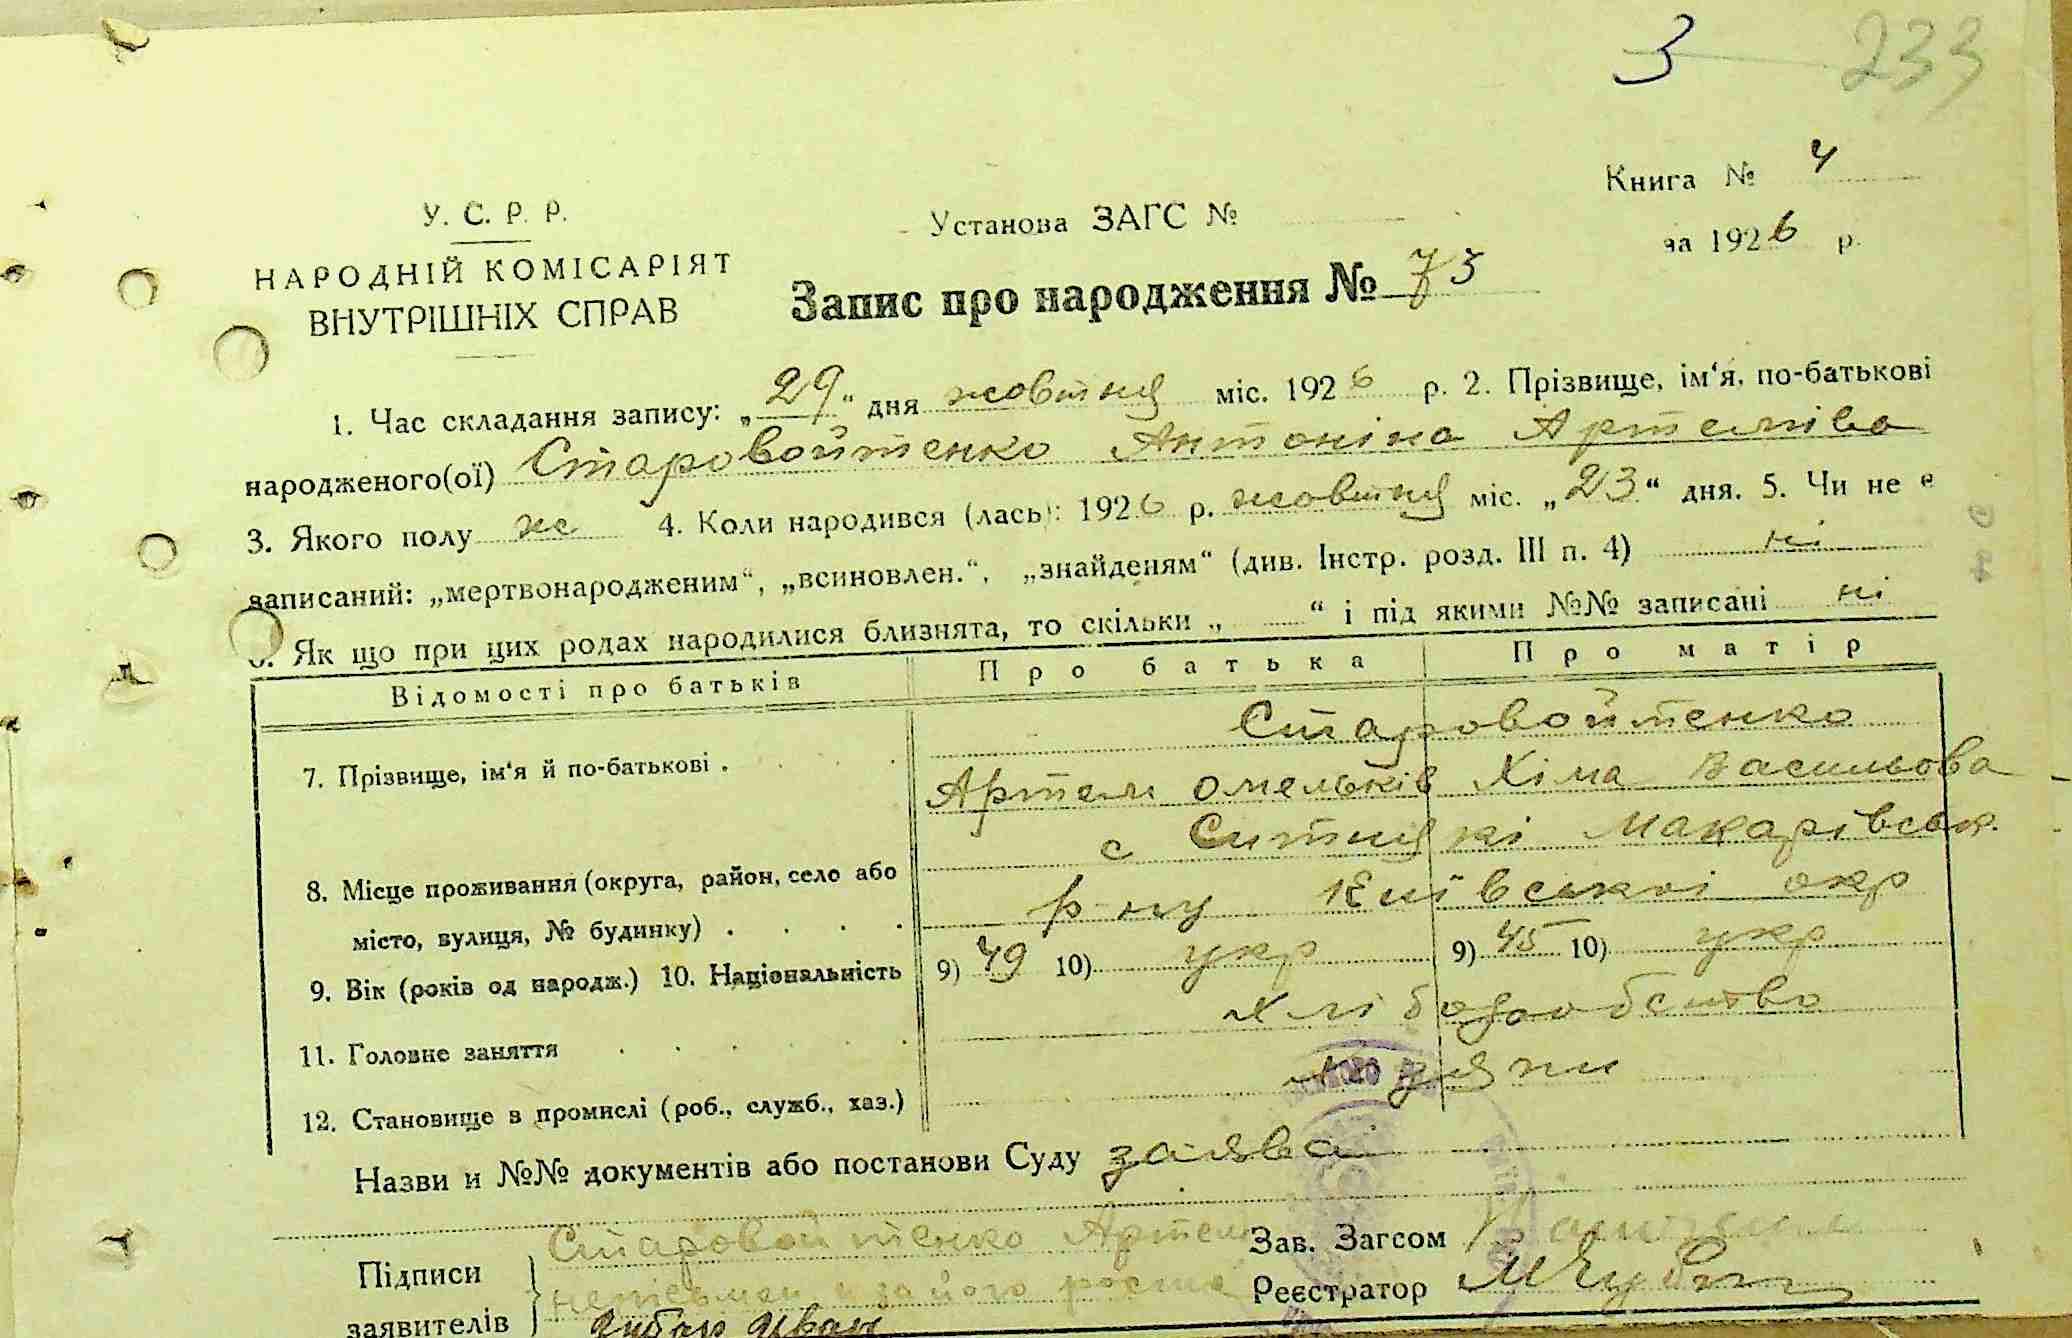 3 233
Книга № 4
У. С. Р. Р.
Установа ЗАГС №
за 1926 р.
НАРОДНІЙ КОМІСАРІЯТ
ВНУТРІШНІХ СПРАВ
Запис про народження № 73
1. Час складання запису: „29“ дня жовтня міс. 1926 р. 2. Прізвище, ім‘я, по-батькові
народженого(ої) Старовойтенко Антоніна Артемівa
3. Якого полу ж 4. Коли народився (лась): 1926 р. жовтня міс. „23“ дня. 5. Чи не є
записаний: „мертвонародженим“, „всиновлен.“, „знайденям“ (див. Інстр. розд. III п. 4) ні
6. Як що при цих родах народилися близнята, то скільки „ “ і під якими №№ записані ні
Відомості про батьків Про батька Про матір
7. Прізвище, ім‘я й по-батькові . Старовойтенко
Артем Омельків Хіма Васильова
8. Місце проживання (округа, район, село або с Ситняки Макарівськ.
місто, вулиця, № будинку) . р-ну Київської окр
9. Вік (років од народж.) 10. Національність 9) 49 10) укр 9) 45 10) укр
11. Головне заняття хліборобство
12. Становище в промислі (роб., служб., хаз.)
Назви и №№ документів або постанови Суду заява
Підписи Старовойтенко Артем Зав. Загсом
заявителів Іван Реєстратор